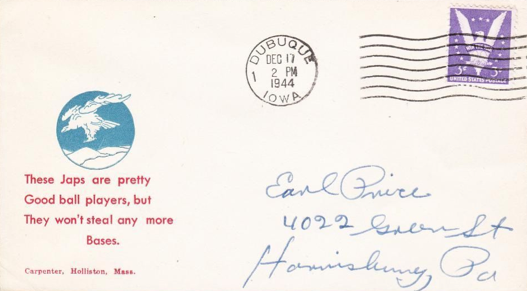 DUBUQUE
DEC 17
2 PM
1944
1
IOWA
3¢ 3¢
UNITED STATES POSTAGE
These Japs are pretty
Good ball players, but
They won't steal any more
Bases.
Carpenter, Holliston, Mass.
Earl Price
4022 Green St
Harrisburg, Pa